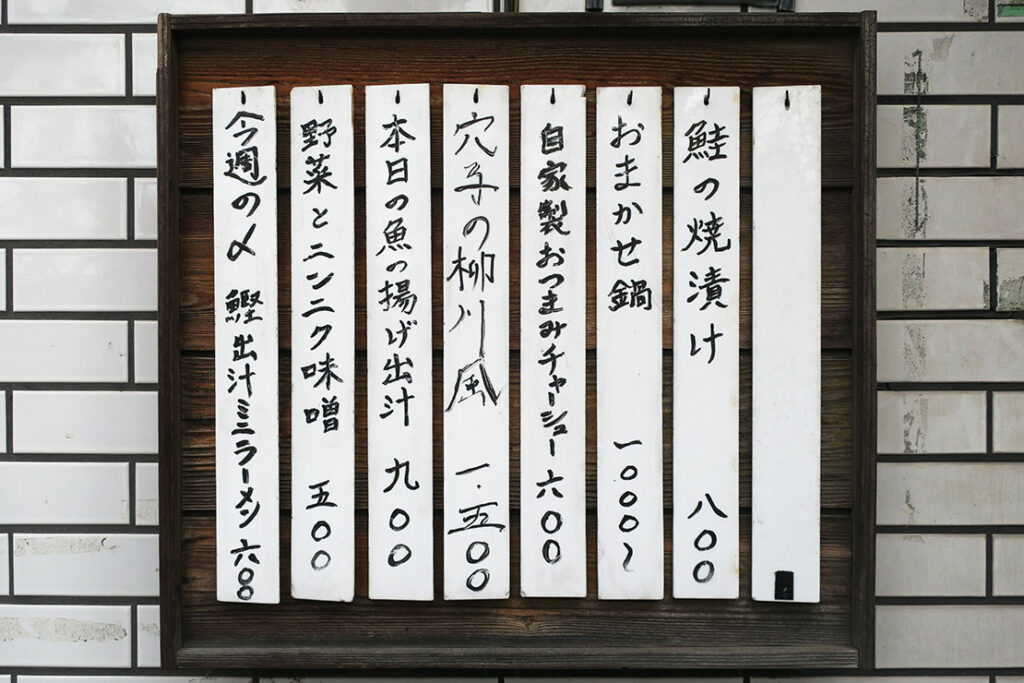 鮭の焼漬け 八〇〇
おまかせ鍋 一〇〇〇〜
自家製おつまみチャーシュー 六〇〇
穴子の柳川風 一.五〇〇
本日の魚の揚げ出汁 九〇〇
野菜とニンニク味噌 五〇〇
今週の〆 鰹出汁ミニラーメン 六〇〇